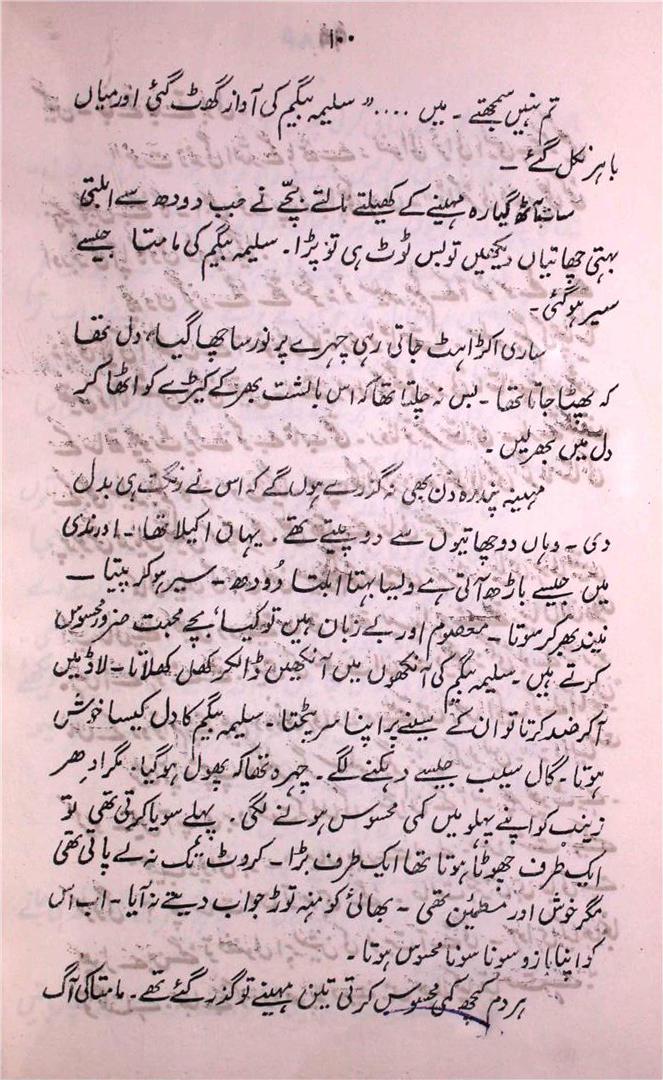 ۱۰۰
تم نہیں سمجھتے ۔ میں ....” سلیمہ بیگم کی آواز گھٹ گئی اور میاں
باہر نکل گئے ۔
سات آٹھ گیارہ مہینے کے کھیلتے مالتے بچّے نے جب دودھ سے ابلتی
بہتی چھاتیاں دیکھیں تو بس ٹوٹ ہی تو پڑا ۔ سلیمہ بیگم کی مامتا جیسے
سیر ہو گئی ۔
ساری اکڑاہٹ جاتی رہی چہرے پر نور سا چھا گیا، دل تھا
کہ پھٹا جاتا تھا ۔ بس نہ چلتا تھا کہ اس بالشت بھر کے کیڑے کو اٹھا کر
دل میں بھر لیں ۔
مہینہ پندرہ دن بھی نہ گزرے ہوں گے کہ اس نے رنگت ہی بدل
دی ۔ وہاں دو چھاتیوں سے دو پیتے تھے ۔ یہاں اکیلا تھا ۔ اور ندی
میں جیسے باڑھ آتی ہے ولیسا بہتا ابلتا دُودھ ۔ سیر ہو کر پیتا ۔
نیند بھر کر سوتا ۔ معصوم اور بے زبان ہیں تو کیا، بچے محبت ضرور محسوس
کرتے ہیں ۔ سلیمہ بیگم کی آنکھوں میں آنکھیں ڈالکر کھل کھلاتا ۔ لاڈ میں
آکر ضد کرتا تو ان کے سینے پر اپنا سر پٹختا ۔ سلیمہ بیگم کا دل کیسا خوش
ہوتا ۔ گال سیب جیسے دہکنے لگے ۔ چہرہ تھا کہ پھول ہو گیا ۔ مگر ادھر
زینب کو اپنے پہلو میں کمی محسوس ہونے لگی ۔ پہلے سویا کرتی تھی تو
ایک طرف چھوٹا ہوتا تھا ایک طرف بڑا ۔ کروٹ تک نہ لے پاتی تھی
مگر خوش اور مطمئن تھی ۔ بھائی کو منہ توڑ جواب دیتے نہ آیا ۔ اب اس
کو اپنا بازو سونا سونا محسوس ہوتا ۔
ہر دم کچھ کمی محسوس کرتی تین مہینے تو گذر گئے تھے ۔ مامتا کی آگ